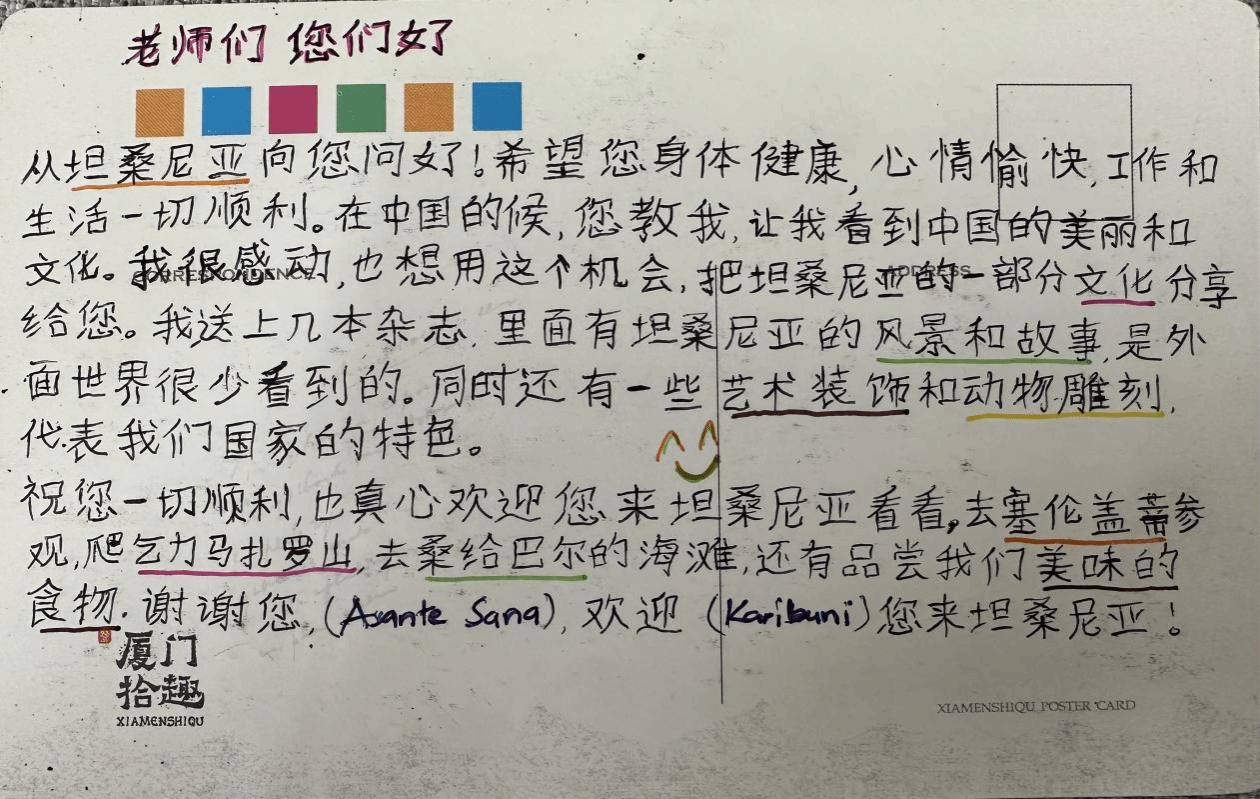 老师们 您们好
从坦桑尼亚向您问好！希望您身体健康，心情愉快，工作和
生活一切顺利。在中国的候，您教我，让我看到中国的美丽和
CORRESPONDENCE
ADDRESS
文化。我很感动，也想用这个机会，把坦桑尼亚的一部分文化分享
给您。我送上几本杂志，里面有坦桑尼亚的风景和故事，是外
面世界很少看到的。同时还有一些艺术装饰和动物雕刻，
代表我们国家的特色。
祝您一切顺利，也真心欢迎您来坦桑尼亚看看，去塞伦盖蒂参
观，爬乞力马扎罗山，去桑给巴尔的海滩，还有品尝我们美味的
食物。谢谢您，(Asante Sana)，欢迎 (Karibuni) 您来坦桑尼亚！
厦门
拾趣
XIAMENSHIQU
XIAMENSHIQU POSTER CARD